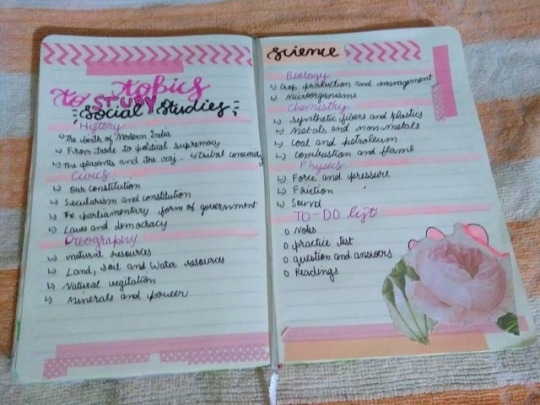 topics
to STUDY
Social Studies
History
The of Modern India
From trade to political supremacy
The and the - Tribal
Civics
Our constitution
Secularism and constitution
The parliamentary form of government
Laws and democracy
Geography
natural resources
Land, soil and Water resources
Natural vegitation
Minerals and power
Science
Biology
Crop production and management
Microorganisms
Chemistry
Synthetic fibers and plastics
Metals and non-metals
Coal and petroleum
Combustion and flame
Physics
Force and pressure
Friction
Sound
TO-DO list
Notes
practice test
question and answers
Readings